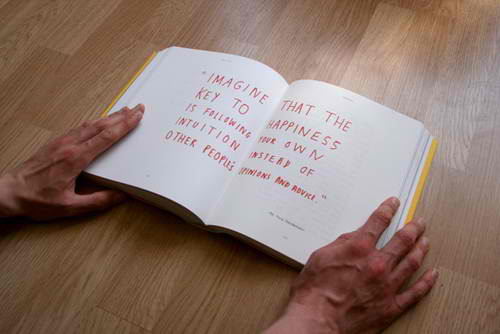 "IMAGINE THAT THE
KEY TO HAPPINESS
IS FOLLOWING YOUR OWN
INTUITION INSTEAD OF
OTHER PEOPLE'S OPINIONS AND ADVICE."